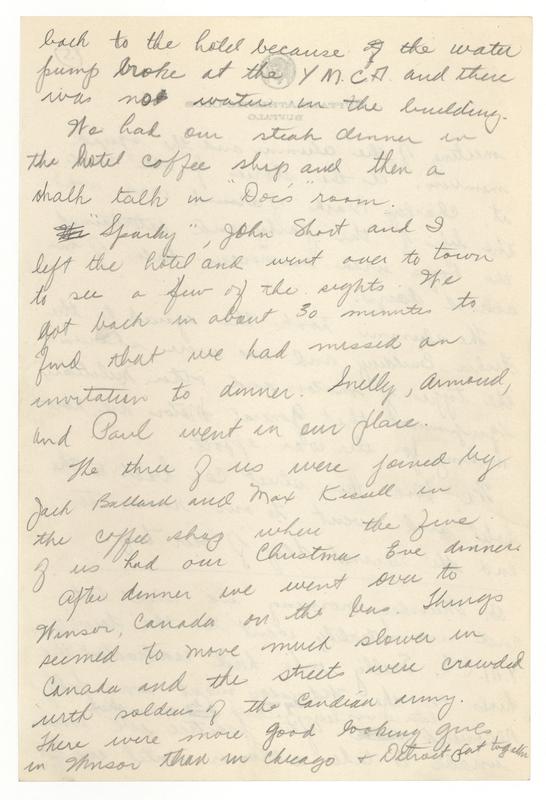 back to the hotel because of the water
pump broke at the Y.M.C.A. and there
was not water in the building.
We had our steak dinner in
the hotel coffee shop and then a
chalk talk in "Doc's" room.
"Sparky", John Short and I
left the hotel and went over to town
to see a few of the sights. We
got back in about 30 minutes to
find that we had missed an
invitation to dinner. Snelly, Armond,
and Paul went in our place.
The three of us were joined by
Jack Ballard and Max Kissell in
the coffee shop where the five
of us had our Christma Eve dinner.
After dinner we went over to
Winsor, Canada on the bus. Things
seemed to move much slower in
Canada and the streets were crowded
with soldiers of the Candian army.
There were more good looking girls
in Winsor than in Chicago + Detroit put together